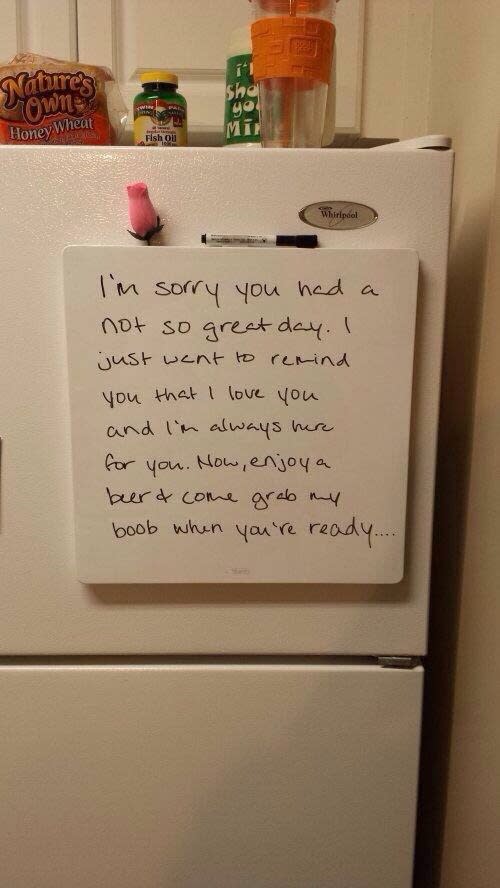 Nature's
Own
Honey Wheat
TWIN
Fish Oil
it's
Sho
you
Mi
Whirlpool
I'm sorry you had a
not so great day. I
just want to remind
you that I love you
and I'm always here
for you. Now, enjoy a
beer & come grab my
boob when you're ready....